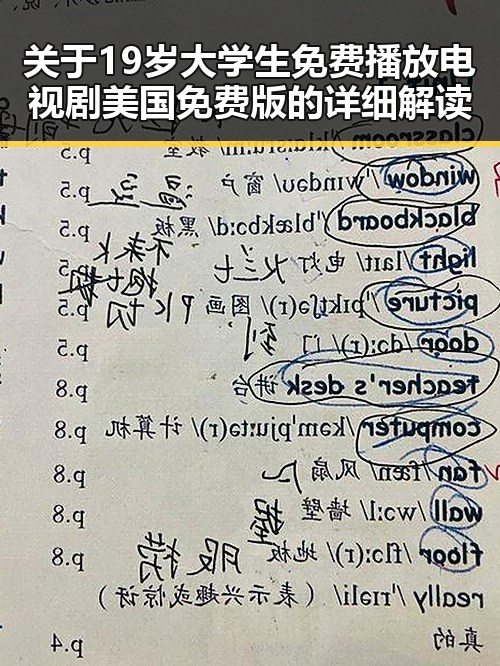 关于19岁大学生免费播放电
视剧美国免费版的详细解读
classroom /'klɑːsruːm/ 教室 p.5
window /'wɪndəʊ/ 窗户 p.5
温豆
blackboard /'blækbɔːd/ 黑板 p.5
不来k
light /laɪt/ 电灯 p.5
picture /'pɪktʃə(r)/ 图画 p.5
PK切
door /dɔː(r)/ 门 p.5
到
teacher's desk 讲台 p.8
computer /kəm'pjuːtə(r)/ 计算机 p.8
fan /fæn/ 风扇 p.8
wall /wɔːl/ 墙壁 p.8
握
floor /flɔː(r)/ 地板 p.8
服捞
really /'rɪəli/ （表示兴趣或惊讶）
真的 p.4